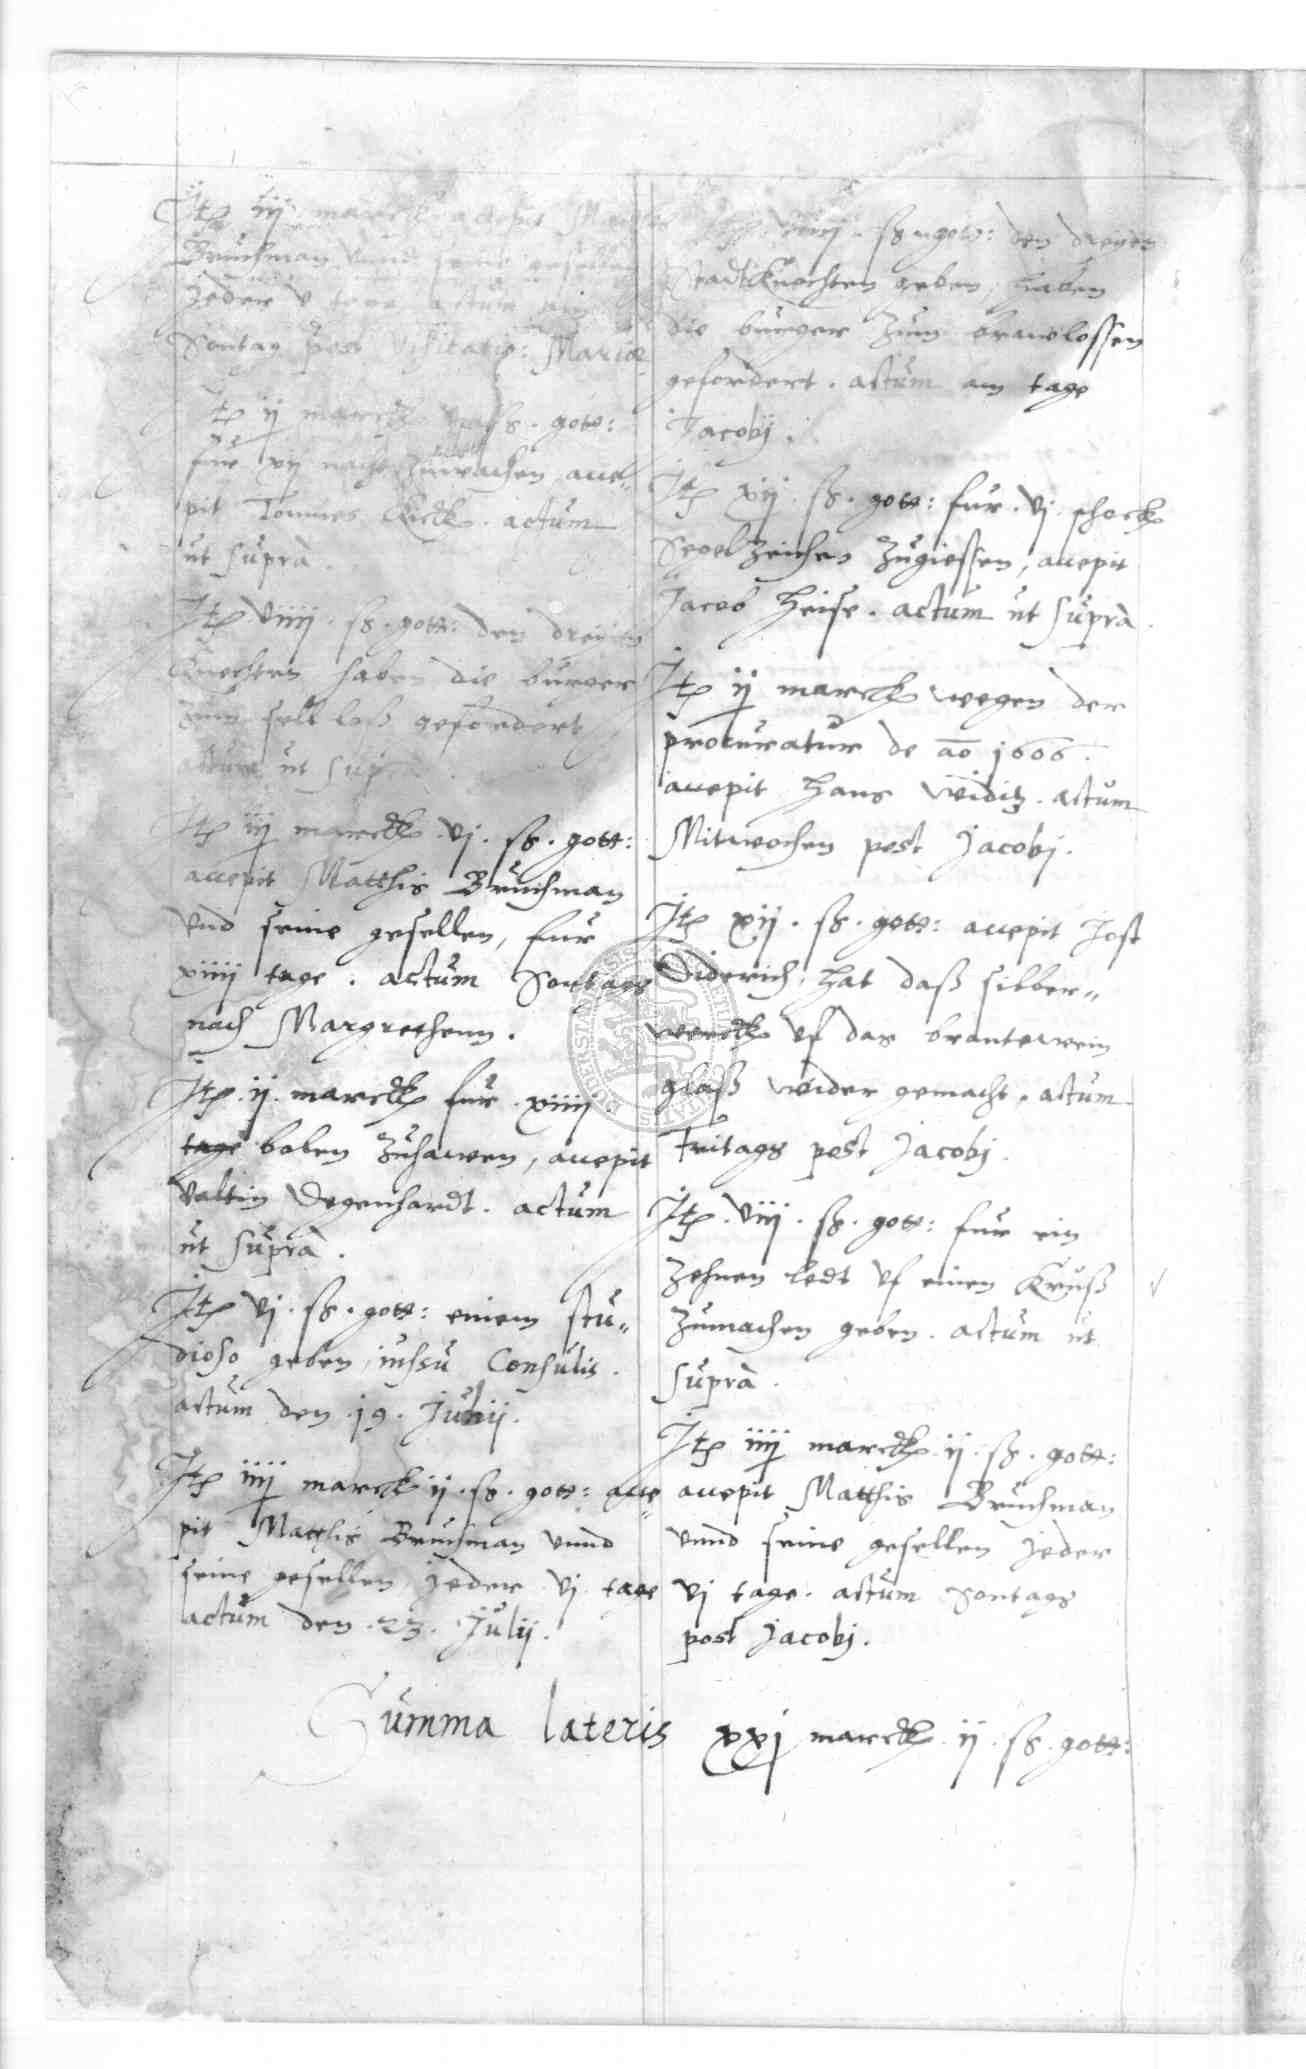 Jtem iij marck accepit Matthis
Bruchman vnnd seine gesellen
Jeder v tage actum am
Sontag post Visitatio: Mariæ
Jtem ij marck ß. gott:
fur xij nacht zuwachen, acce-
pit Tonnies Kirck. actum
ut supra.
Jtem viiij. ß. gott: den dreyen
Knechten haben die burger
zum sell loß gefordert
actum ut supra
Jtem iij marck. vj. ß. gott:
accepit Matthis Bruchman
vnd seine gesellen, fur
xiiij tage. actum Sontags
nach Margrethenn.
Jtem. ij. marck fur. xiiij.
tage bolen zuhawen, accepit
Valtin Degenhardt. actum
ut supra.
Jtem vj. ß. gott: einem stu-
dioso geben, iussu Consulis.
actum den. 19. Julij.
Jtem iiij marck ij. ß. gott: acce-
pit Matthis Bruchman vnnd
seine gesellen jeder vj tage
actum den. 23. Julij.
Jtem viiij. ß. gott: den dreyen
Stadtknechten geben, haben
die burger zum brawlossen
gefordert. actum am tage
Jacobj.
Jtem xij. ß. gott: fur. vj. schock
Segelzeichen zugiessen, accepit
Jacob Heise. actum ut supra.
Jtem ij marck wegen der
procuratur de ao 1606.
accepit Hans Widitz. actum
Mitwochen post Jacobj.
Jtem xij. ß. gott: accepit Jost
Diderich, hat daß silber-
werck vf das brantewein
glaß wider gemacht. actum
Fritags post Jacobj.
Jtem. viij. ß. gott: fur ein
zehnen ledt vf einen Kruß
zumachen geben. actum ut
supra.
Jtem iiij marck. ij. ß. gott:
accepit Matthis Bruchman
vnnd seine gesellen jeder
vj tage. actum Sontags
post Jacobj.
Summa lateris xxj marck. ij. ß. gott: